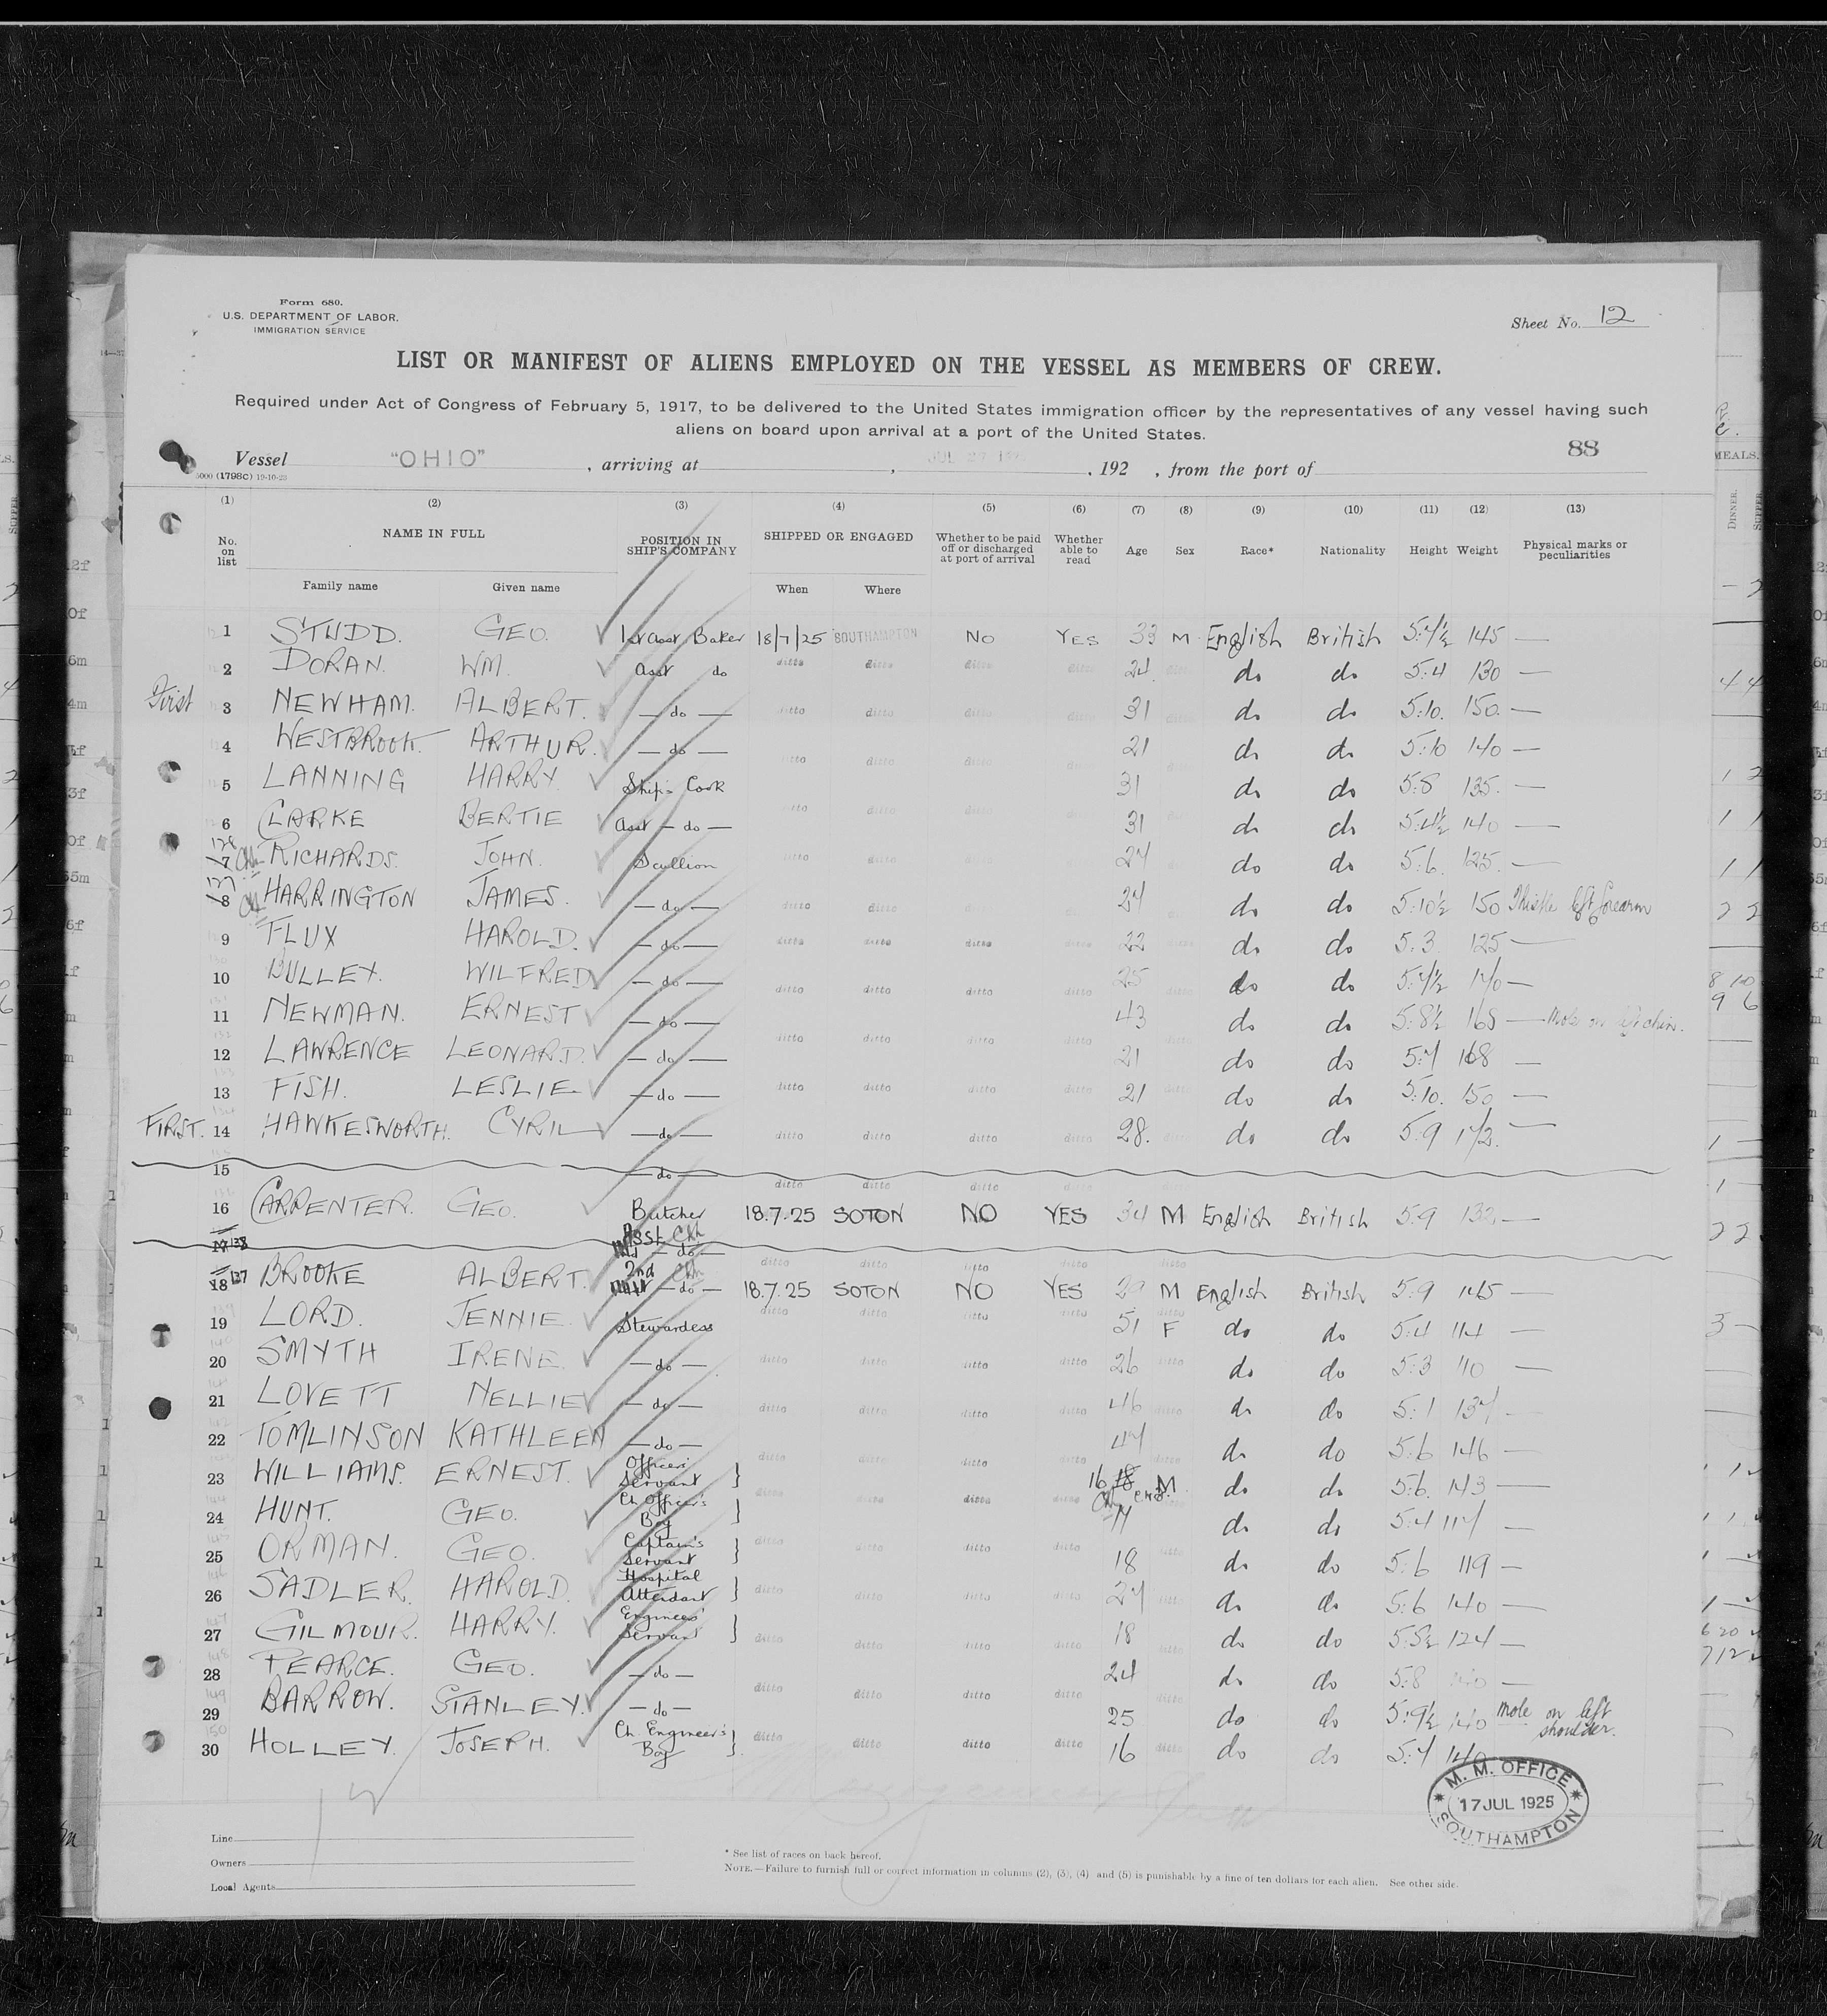 Form 680.
U.S. DEPARTMENT OF LABOR.
IMMIGRATION SERVICE
Sheet No. 12
LIST OR MANIFEST OF ALIENS EMPLOYED ON THE VESSEL AS MEMBERS OF CREW.
Required under Act of Congress of February 5, 1917, to be delivered to the United States immigration officer by the representatives of any vessel having such
aliens on board upon arrival at a port of the United States.
88
Vessel "OHIO" , arriving at , JUL 27 , 192 , from the port of
5000 (1798C) 19-10-23
(1) (2) (3) (4) (5) (6) (7) (8) (9) (10) (11) (12) (13)
No. on list NAME IN FULL POSITION IN SHIP'S COMPANY SHIPPED OR ENGAGED Whether to be paid off or discharged at port of arrival Whether able to read Age Sex Race* Nationality Height Weight Physical marks or peculiarities
Family name Given name When Where
1 STUDD. GEO. 1st Asst Baker 18/7/25 SOUTHAMPTON NO YES 33 M English British 5:7½ 145 —
2 DORAN. WM. Asst do ditto ditto ditto ditto 24 ditto do do 5:4 130 —
First 3 NEWHAM. ALBERT. — do — ditto ditto ditto ditto 31 do do 5:10. 150. —
4 WESTBROOK. ARTHUR. — do — ditto ditto ditto 21 do do 5:10 140 —
5 LANNING HARRY Ship's Cook 31 do do 5:8 135. —
6 CLARKE BERTIE Asst — do — ditto ditto ditto 31 do do 5:4½ 140 —
128 7 RICHARDS. JOHN. Scullion ditto ditto 27 do do 5:6. 125. —
127 8 HARRINGTON JAMES. — do — ditto ditto 27 do do 5:10½ 150 Thistle left forearm
9 FLUX HAROLD. — do — ditto ditto ditto ditto 22 ditto do do 5:3 125 —
10 BULLEY. WILFRED — do — ditto ditto ditto ditto 25 do do 5:7½ 170 —
11 NEWMAN. ERNEST — do — ditto ditto ditto ditto 43 do do 5:8½ 168 — Mole on left chin.
12 LAWRENCE LEONARD. — do — ditto ditto ditto ditto 21 do do 5:7 168 —
13 FISH. LESLIE — do — ditto ditto ditto ditto 21 ditto do do 5:10. 150 —
FIRST. 14 HAWKESWORTH. CYRIL — do — ditto ditto ditto ditto 28. do do 5:9 172. —
15 — do — ditto ditto ditto ditto
16 CARPENTER. GEO. Butcher 18.7.25 SOTON NO YES 34 M English British 5:9 132 —
17 138 Asst — do — ditto ditto ditto ditto
18 137 BROOKE ALBERT. 2nd — do — 18.7.25 SOTON NO YES 29 M English British 5:9 165 —
19 LORD. JENNIE. Stewardess ditto ditto ditto ditto 51 F do do 5:4 114 —
20 SMYTH IRENE. — do — ditto ditto ditto ditto 26 ditto do do 5:3 110 —
21 LOVETT NELLIE — do — ditto ditto ditto ditto 46 ditto do do 5:1 137 —
22 TOMLINSON KATHLEEN — do — ditto ditto ditto ditto 47 ditto do do 5:6 146 —
23 WILLIAMS. ERNEST. Officers' Servant } ditto ditto ditto ditto 16 18 M do do 5:6. 143 —
24 HUNT. GEO. Ch. Officer's Boy } ditto ditto ditto ditto 17 do do 5:4 117 —
25 ORMAN. GEO. Captain's Servant } ditto ditto ditto ditto 18 ditto do do 5:6 119 —
26 SADLER. HAROLD. Hospital Attendant } ditto ditto ditto ditto 27 ditto do do 5:6 140 —
27 GILMOUR. HARRY. Engineers' Servant } ditto ditto ditto ditto 18 do do 5:5½ 124 —
28 PEARCE. GEO. — do — 24 do do 5:8 140 —
29 BARROW. STANLEY. — do — ditto ditto ditto ditto 25 ditto do do 5:9½ 140 mole on left shoulder.
30 HOLLEY. JOSEPH. Ch. Engineer's Boy } ditto ditto ditto ditto 16 ditto do do 5:7 140
M. M. OFFICE
17 JUL 1925
SOUTHAMPTON
Line
Owners
Local Agents
* See list of races on back hereof.
NOTE.—Failure to furnish full or correct information in columns (2), (3), (4) and (5) is punishable by a fine of ten dollars for each alien. See other side.